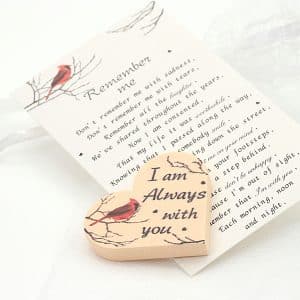 Remember
me
Don't remember me with sadness,
Don't remember me with tears,
Remember all the laughter,
We've shared throughout the years.
Now I am contented,
That my life it was worthwhile,
Knowing that I passed along the way,
somebody smile
down the street
your footsteps
a step behind
don't be unhappy
I'm out of sight
I'm with you
Each morning, noon
and night
I am
Always
with
you